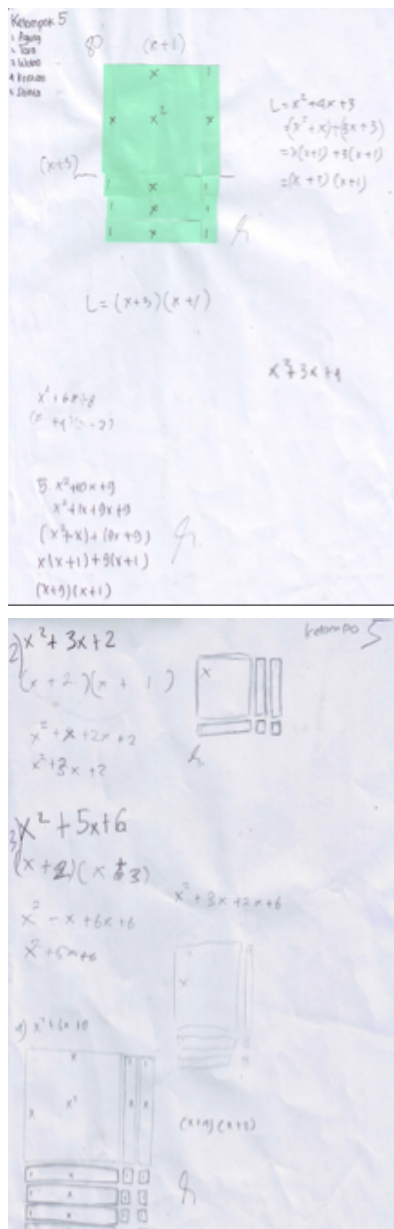 Kelompok 5
1. Agung
2. Tara
80
(x+1)
x 1
x x² x
(x+3)
1 x 1
1 x 1
1 x 1
L = x²+4x+3
=(x²+x)+(3x+3)
=x(x+1)+3(x+1)
=(x+3)(x+1)
L = (x+3)(x+1)
x²+3x+9
x²+6x+8
5. x²+10x+9
x²+1x+9x+9
(x²+x)+(9x+9)
x(x+1)+9(x+1)
(x+9)(x+1)
Kelompo 5
2) x² + 3x + 2
(x + 2)(x + 1)
x
x²+x+2x+2
x²+3x+2
3) x² + 5x + 6
(x+2)(x+3)
x²+3x+2x+6
x² - x + 6x + 6
x²+5x+6
x
4) x²+6x+8
x 1 1
x x² x x
(x+4)(x+2)
1 x 1 1
x
x